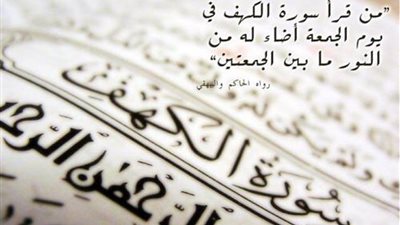 ”من قرأ سورة الكهف في
يوم الجمعة أضاء له من
النور ما بين الجمعتين“
رواه الحاكم والبيهقي
سورة الكهف
الرحمن الرحيم